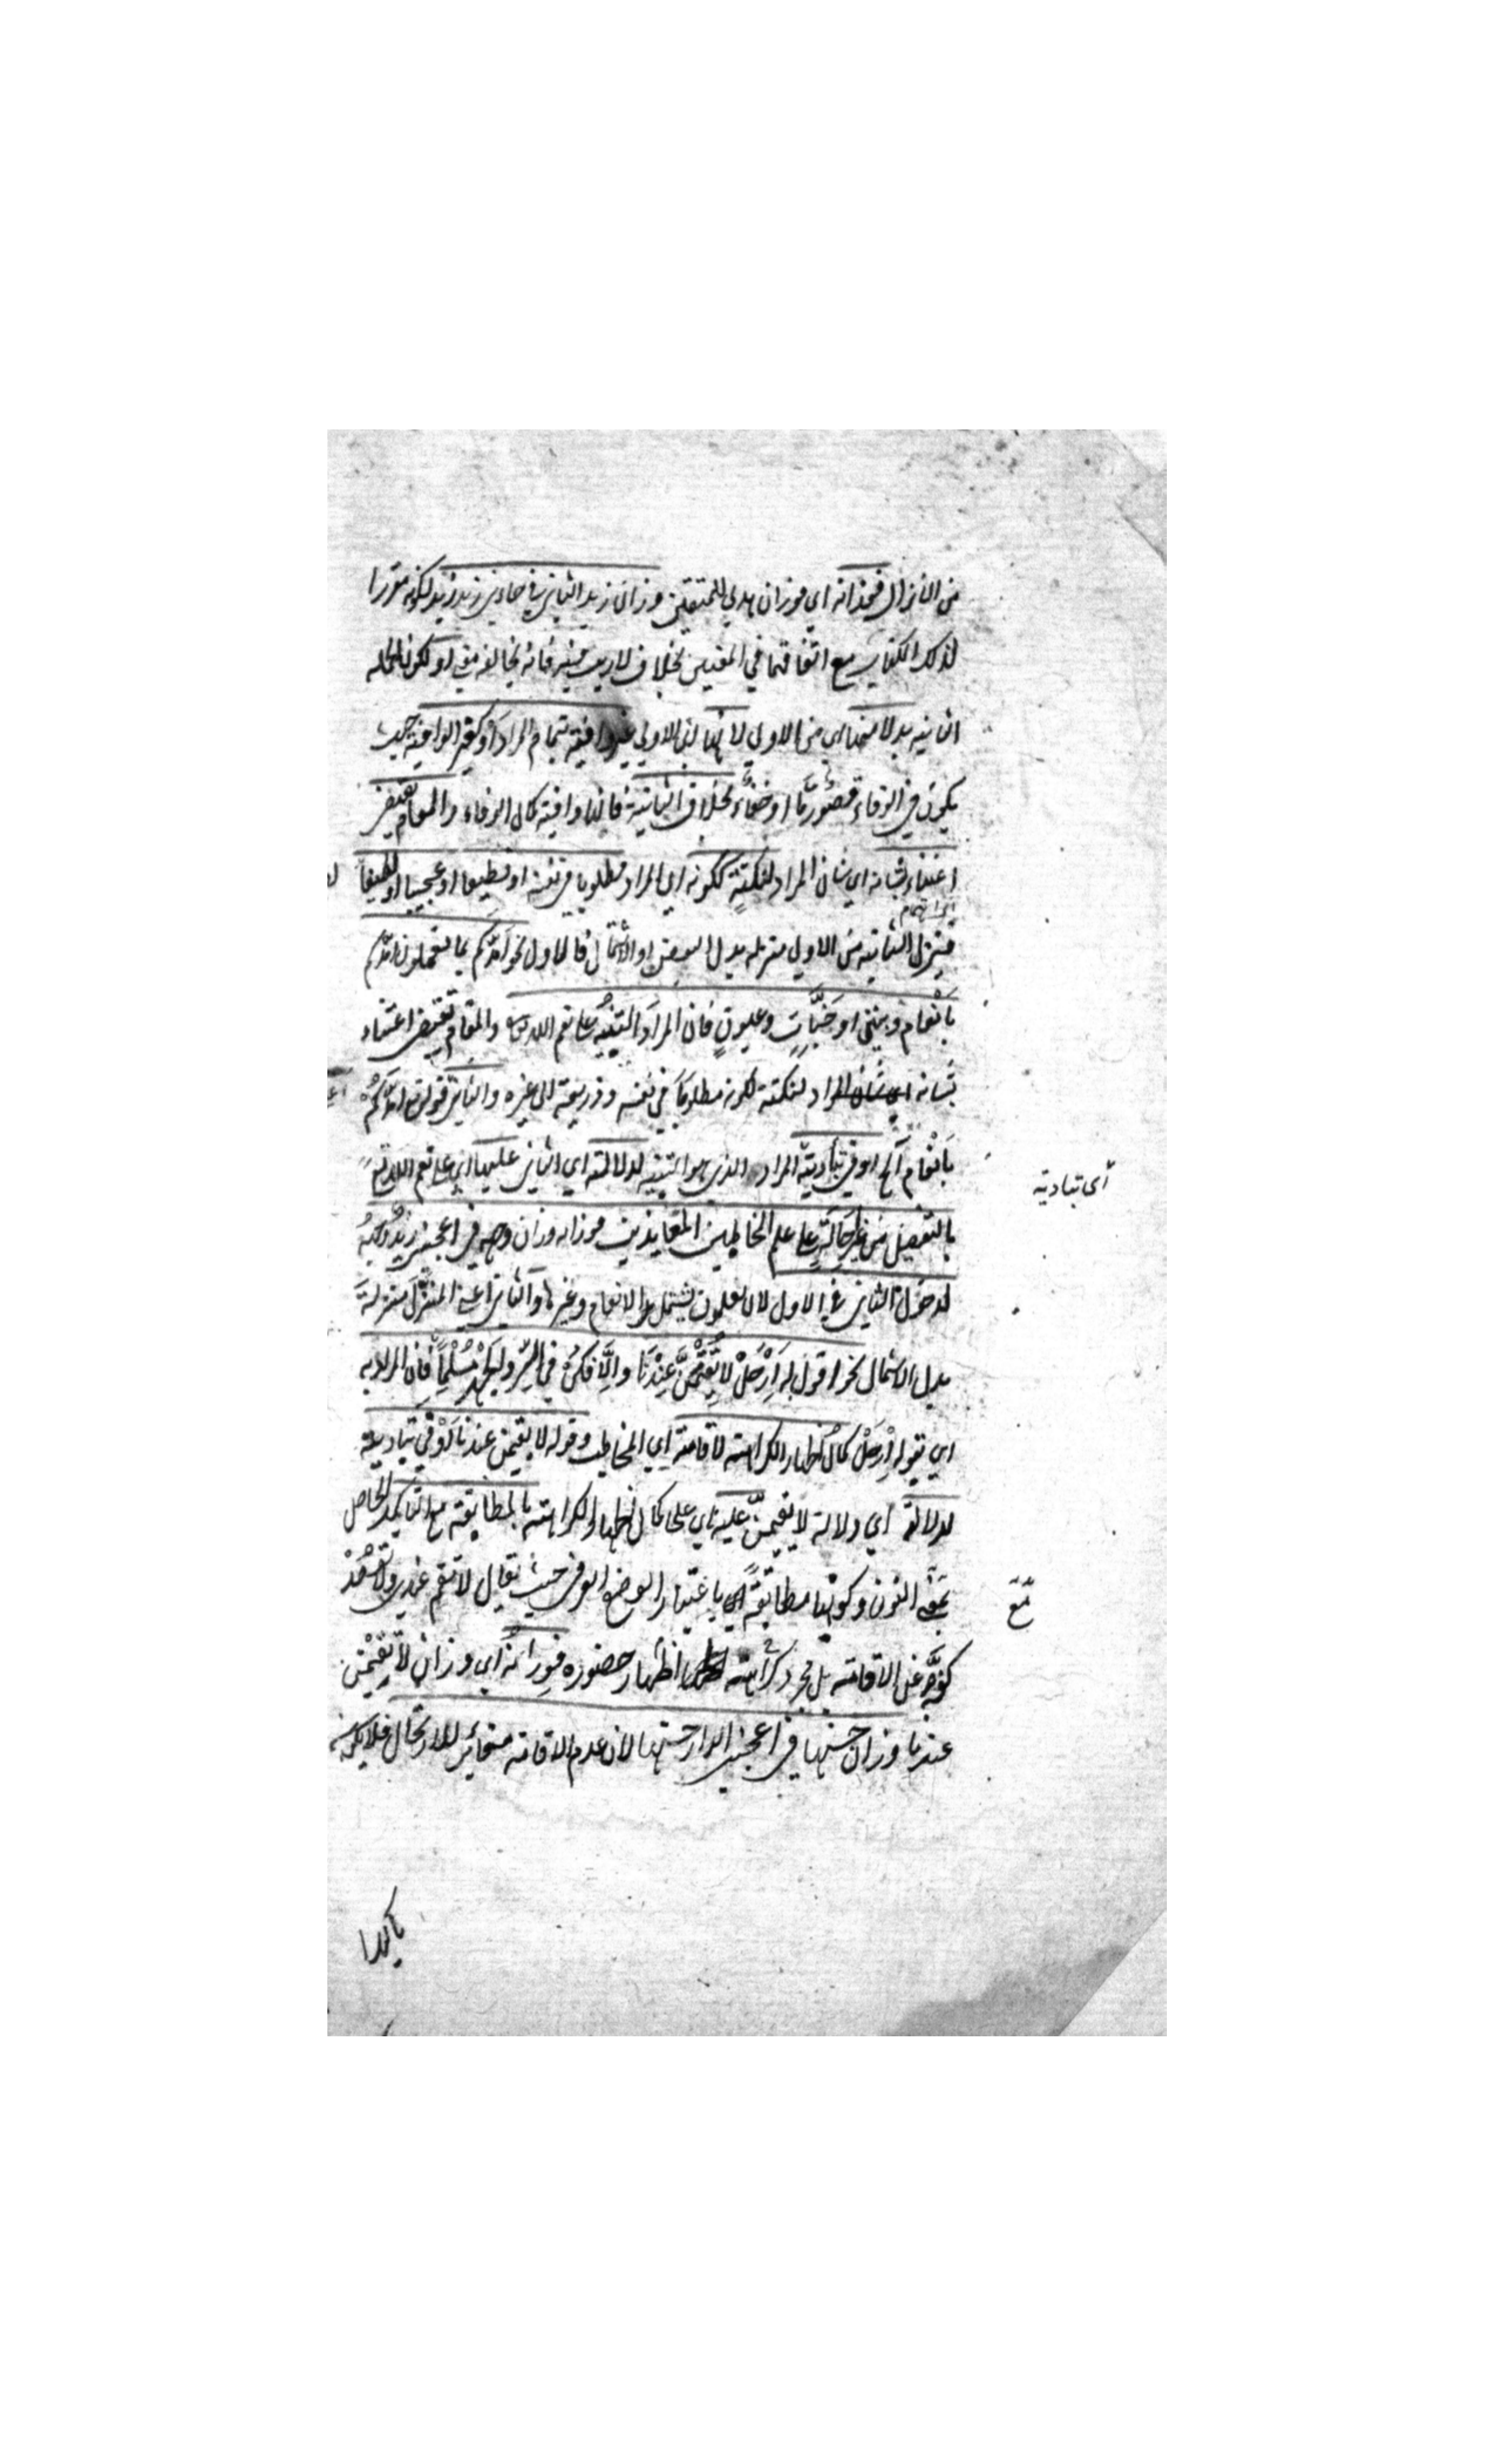 من الانزال فوزانه اي فوزان هدي للمتقين وزان زيد الثاني في جاءني زيد زيد لكونه مقررا
لذلك الكتاب مع اتفاقهما في المعني بخلاف لاريب فيه فانه يخالفه معني او لكون الجمله
الثانيه بدلا منها اي من الاولي لانها اي الاولي غير وافية بتمام المراد او كغير الوافية حيث
يكون في الوفاء قصور ما او خفاء بخلاف الثانية فانها وافية كمال الوفاء والمقام يقتضي
اعتناء بشانه اي شان المراد لنكتة ككونه اي المراد مطلوبا في نفسه او فظيعا او عجيبا او لطيفا
اي الاهتمام
فتنزل الثانيه من الاولي منزله بدل البعض او الاشتمال فالاول نحو امدكم بما تعملون امدكم
بانعام وبنين او جنات وعيون فان المراد التنبيه علي نعم الله تعالى والمقام يقتضي اعتناء
بشانه اي شان المراد لنكتة لكونه مطلوبا في نفسه وذريعة الى غيره والثاني قوله امدكم
بانعام الخ اوفي بتادية المراد الذي هو التنبيه لدلالته اي الثاني عليها اي علي نعم الله تع
اي تبادية
بالتفصيل من غير احالة علي علم المخاطبين المعاندين فوزانه وزان وجهه في اعجبني زيد وجهه
لدخول الثاني في الاول لان ما تعلمون يشتمل الانعام وغيرها والثاني اعني المنزل منزلة
بدل الاشتمال نحو اقول له ارحل لا تقيمن عندنا والا فكن في السر والجهر مسلما فان المراد به
اي بقوله ارحل كمال اظهار الكراهته لاقامته اي المخاطب وقوله لا تقيمن عندنا اوفي بتاديته
لدلالة اي دلالة لا تقيمن عليه اي علي كمال اظهار الكراهته بالمطابقة مع التاكيد الحاصل
من النون وكونها مطابقة اي باعتبار الوضع العرفي حيث يقال لا تقم عندي ولا تقصد
كفه عن الاقامته بل مجرد كراهته اظهار حضوره فوزانه اي وزان لا تقيمن
عندنا وزان حسنها في اعجبني الدار حسنها لان عدم الاقامته مغائر للارتحال فلا يكون
تاكيدا